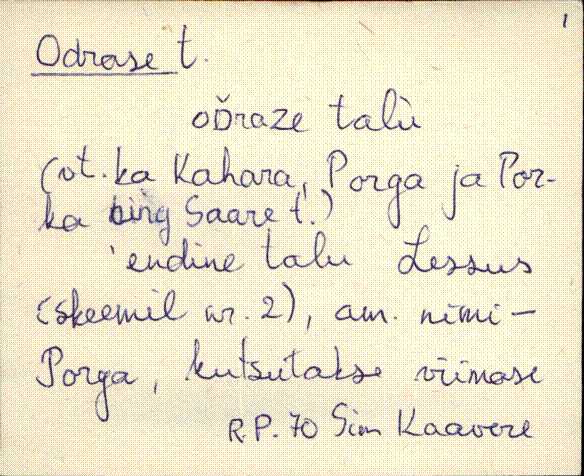 1
Odrase t.
oDraze talù
(vt. ka Kahara, Porga ja Por-
ka ning Saare t.)
'endine talu Lessus
(skeemil nr. 2), am. nimi –
Porga, kutsutakse viimase
R.P. 70 Sim Kaavere